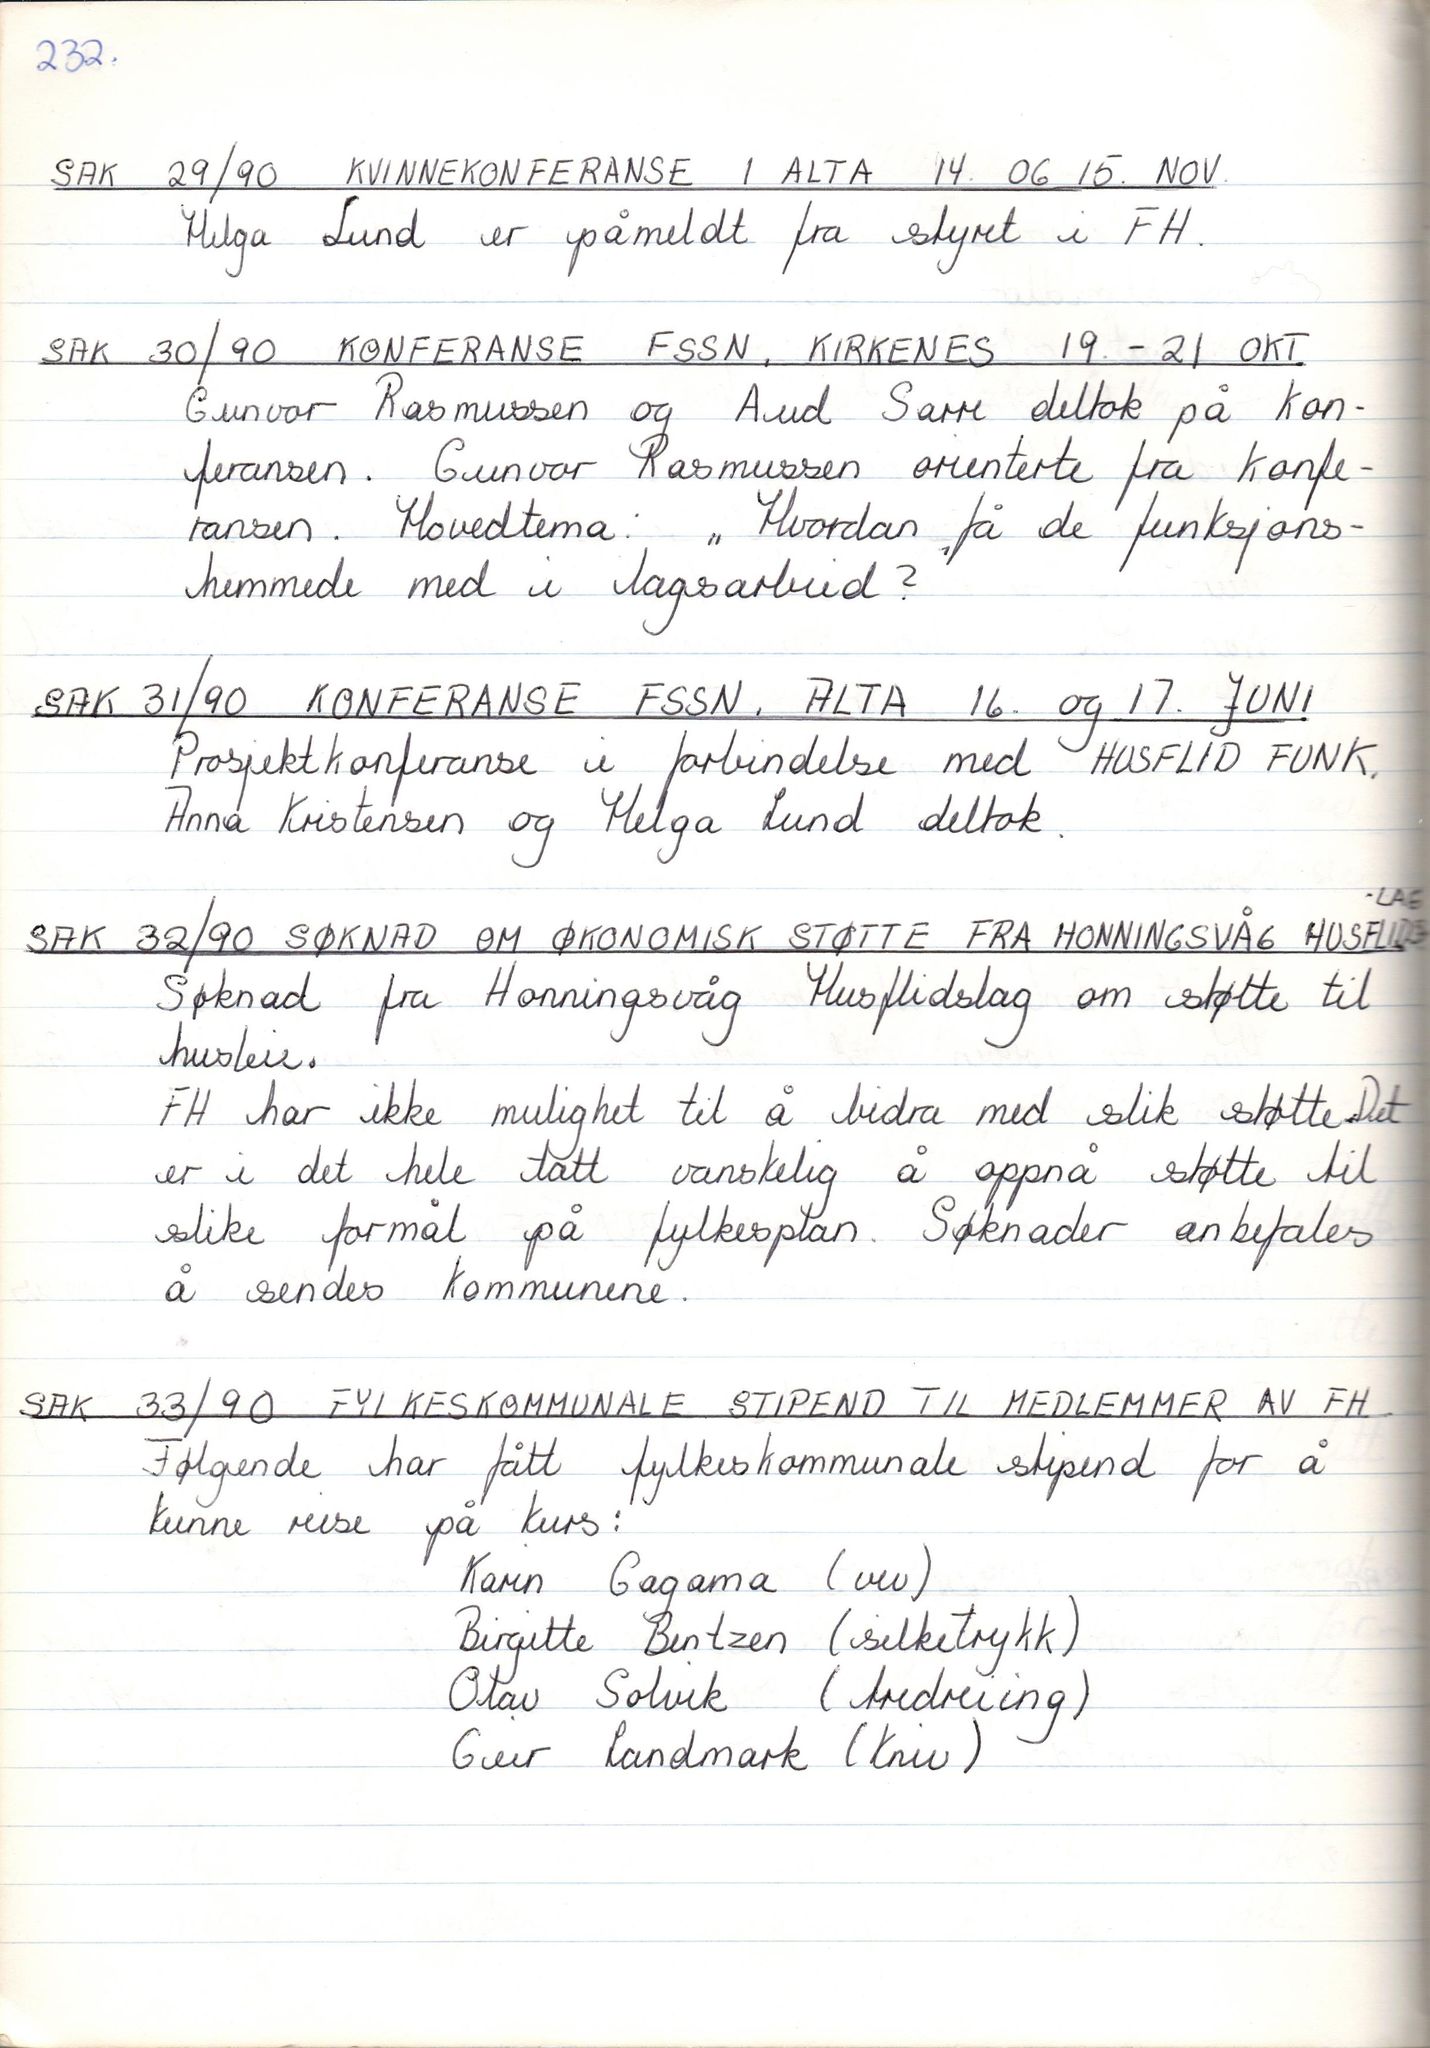 232.
SAK 29/90 KVINNEKONFERANSE I ALTA 14. OG 15. NOV.
Helga Lund er påmeldt fra styret i FH.
SAK 30/90 KONFERANSE FSSN, KIRKENES 19. - 21 OKT.
Gunvor Rasmussen og Aud Sarre deltok på kon-
feransen. Gunvor Rasmussen orienterte fra konfe-
ransen. Hovedtema: „Hvordan „få de funksjons-
hemmede med i lagsarbeid?
SAK 31/90 KONFERANSE FSSN, ALTA 16. og 17. JUNI
Prosjektkonferanse i forbindelse med HUSFLID FUNK.
Anna Kristensen og Helga Lund deltok.
SAK 32/90 SØKNAD OM ØKONOMISK STØTTE FRA HONNINGSVÅG HUSFLIDS
-LAG
Søknad fra Honningsvåg Husflidslag om støtte til
husleie.
FH har ikke mulighet til å bidra med slik støtte. Det
er i det hele tatt vanskelig å oppnå støtte til
slike formål på fylkesplan. Søknader anbefales
å sendes kommunene.
SAK 33/90 FYLKESKOMMUNALE STIPEND TIL MEDLEMMER AV FH.
Følgende har fått fylkeskommunale stipend for å
kunne reise på kurs:
Karin Gagama (vev)
Birgitte Bentzen (silketrykk)
Olav Solvik (tredreiing)
Geir Landmark (kniv)